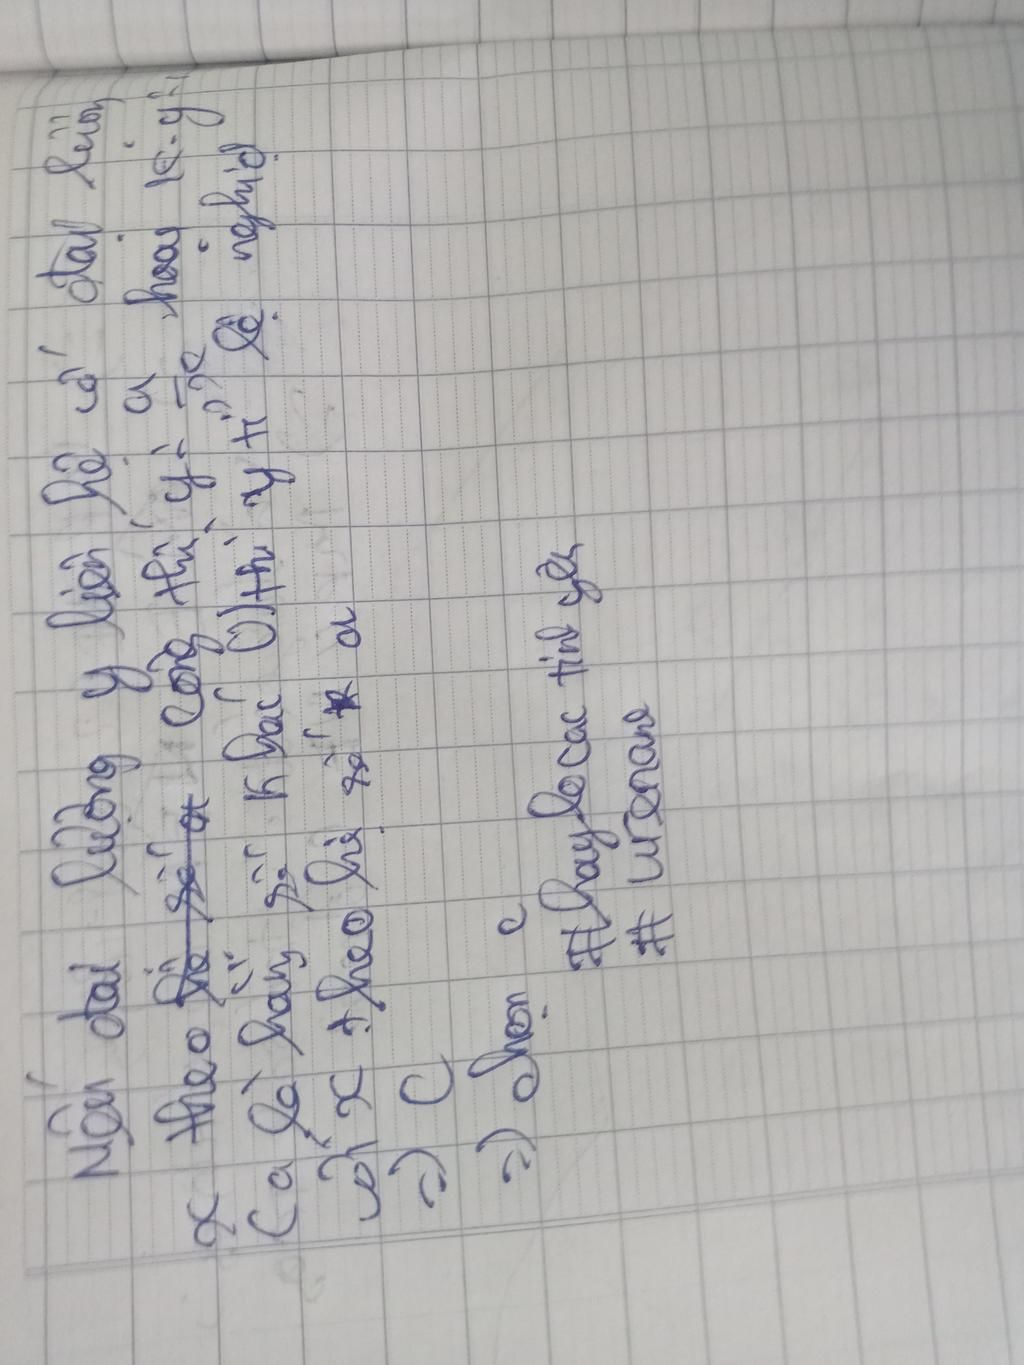 Nếu đại lượng y liên hệ có đại lượng
x theo hệ số a công thứ y = a/x hoay x.y=a
(a là hằng số khác 0) thì y tỉ lệ nghịd
với x theo hệ số a
=) C
=) chọn c
#haylocac tinh yêu